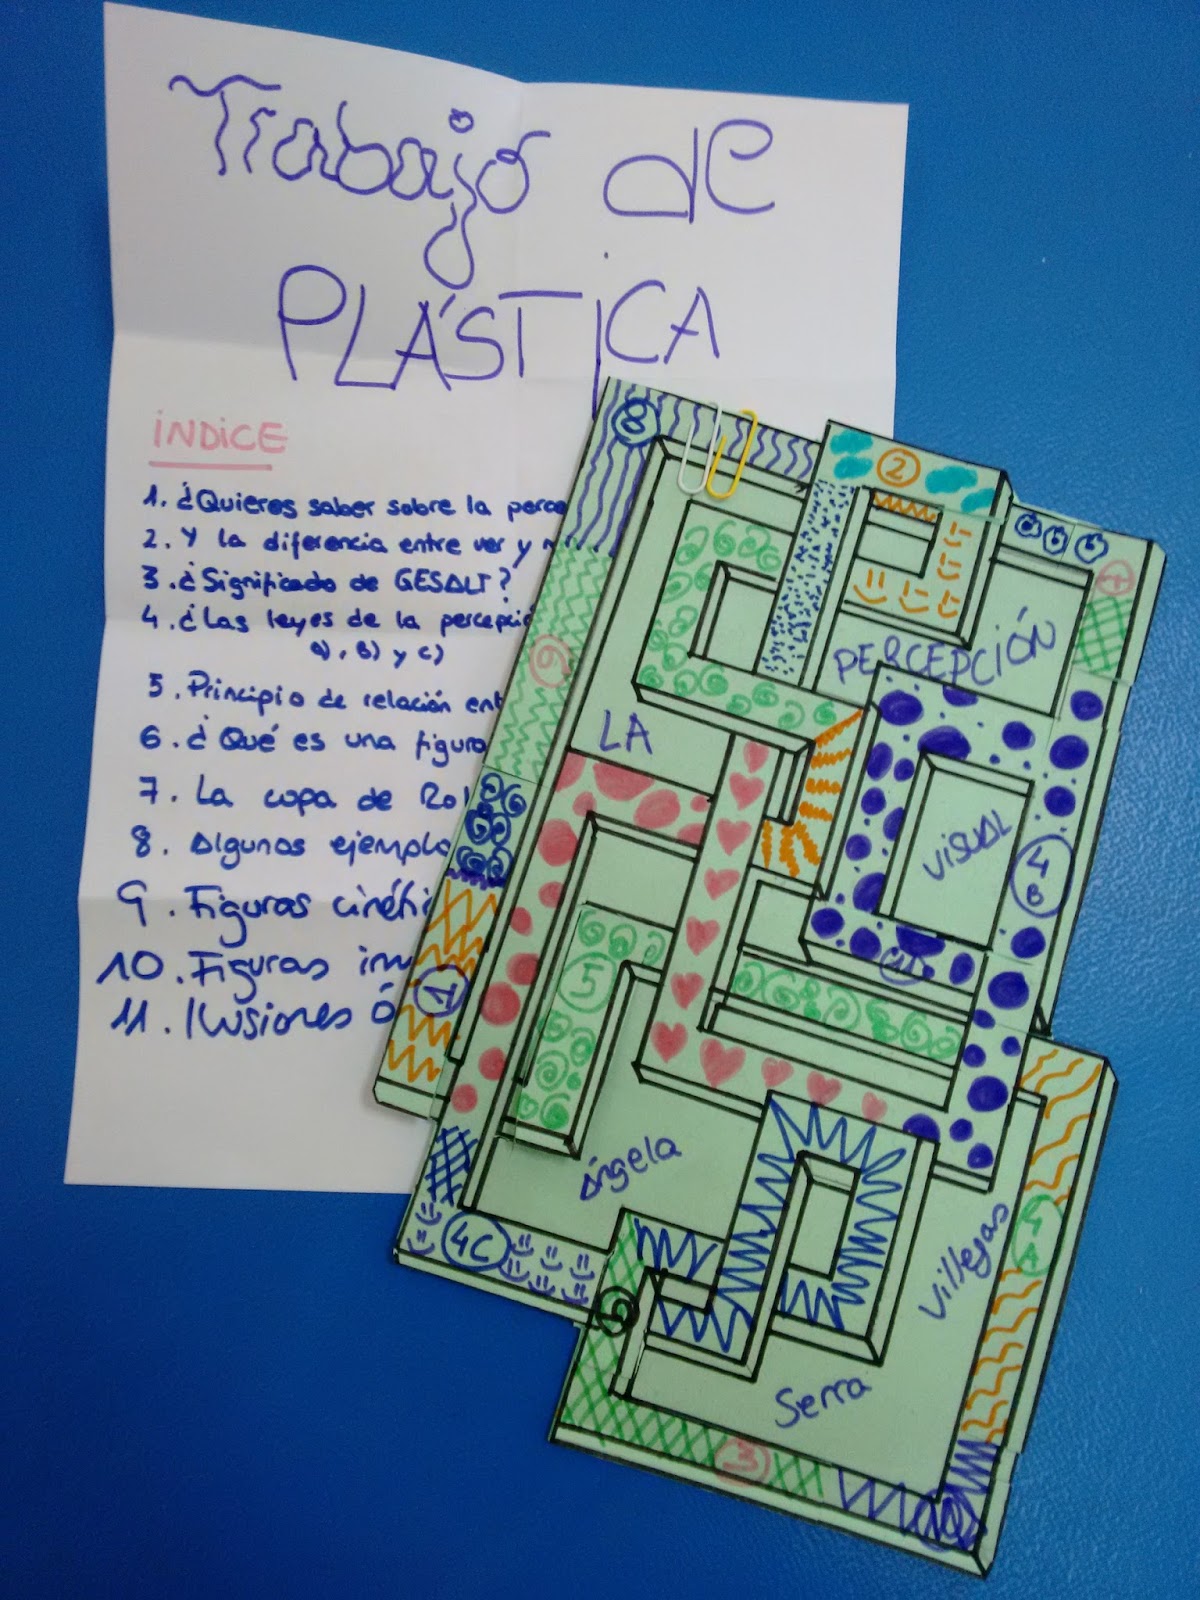 Trabajo de
PLÁSTICA
ÍNDICE
1. ¿Quieres saber sobre la perce
2. Y la diferencia entre ver y m
3. ¿Significado de GESALT?
4. ¿Las leyes de la percepció
a), B) y c)
5. Principio de relación ent
6. ¿Qué es una figura
7. La copa de
8. Algunos ejemplo
9. Figuras cinéti
10. Figuras
11. Ilusiones ó
8
2
9
PERCEPCIÓN
LA
VISUAL
4
B
5
1
Ángela
4C
Villegas
4
A
6
Serra
3